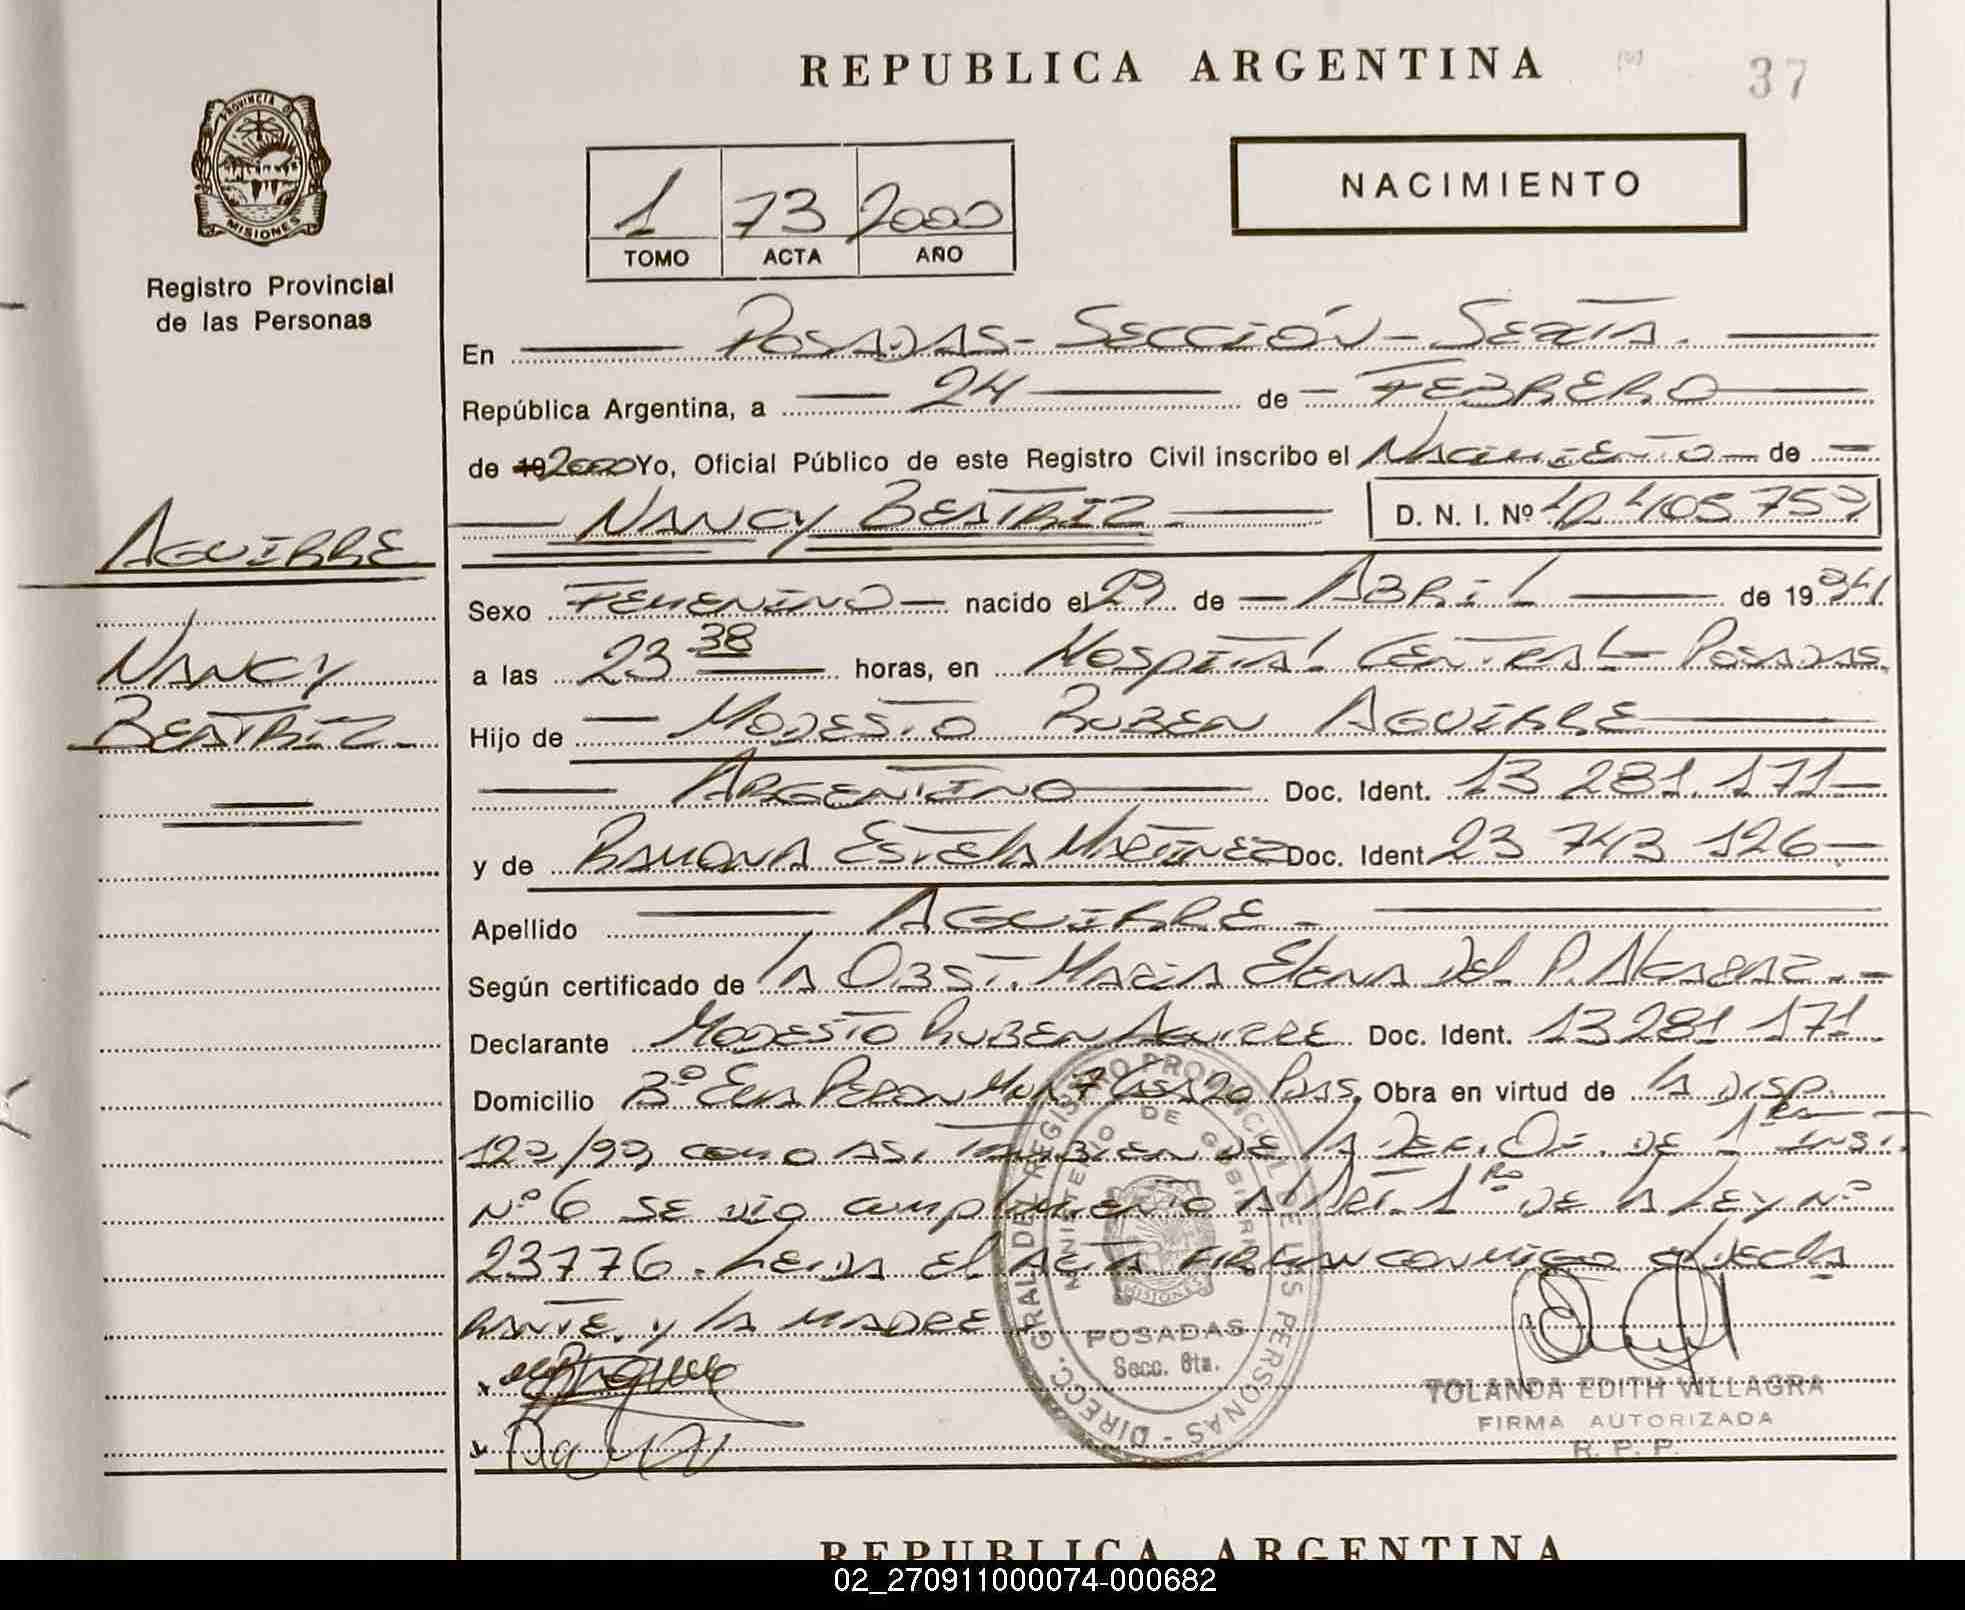 REPUBLICA ARGENTINA
37
PROVINCIA D
MISIONES
Registro Provincial
de las Personas
1 73 2000
TOMO ACTA AÑO
NACIMIENTO
En POSADAS - SECCIÓN - SEXTA.
República Argentina, a 24 de FEBRERO
de 19 2000 Yo, Oficial Público de este Registro Civil inscribo el NACIMIENTO de
NANCY BEATRIZ D. N. I. Nº
AGUIRRE
NANCY
BEATRIZ
Sexo FEMENINO nacido el 29 de ABRIL de 19
a las 23 38 horas, en HOSPITAL CENTRAL - POSADAS.
Hijo de MODESTO RUBEN AGUIRRE
ARGENTINO Doc. Ident. 13 281.171
y de RAMONA ESTELA MARTINEZ Doc. Ident. 23 743 126
Apellido AGUIRRE
Según certificado de LA OBST. MARIA ELENA DEL P. ALCARAZ.
Declarante MODESTO RUBEN AGUIRRE Doc. Ident. 13 281 171
Domicilio Bº EVA PERON 7 CASA 20 PDAS. Obra en virtud de LA DISP.
COMO ASI TAMBIEN DE LA DE 1ra INST.
Nº 6 SE DIO CUMPLIMIENTO AL ART. 1ro DE LA LEY Nº
23776. LEIDA EL ACTA FIRMAN CONMIGO EL DECLA
RANTE Y LA MADRE
DIRECC. GRAL DEL REGISTRO PROVINCIAL DE LAS PERSONAS
MINISTERIO DE GOBIERNO
MISIONES
POSADAS
Secc. 6ta.
YOLANDA EDITH VILLAGRA
FIRMA AUTORIZADA
R. P. P.
REPUBLICA ARGENTINA
02_270911000074-000682